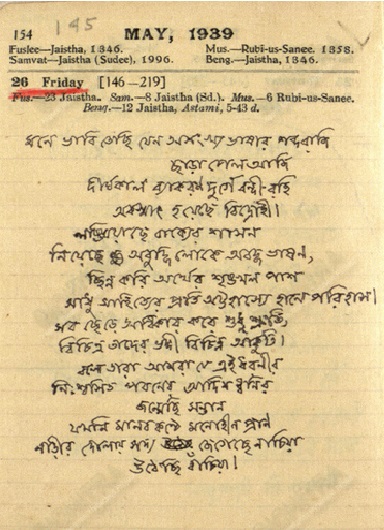 145
154 MAY, 1939
Fuslee—Jaistha, 1346. Mus.—Rubi-us-Sanee. 1358,
Samvat—Jaistha (Sudee), 1996. Beng.—Jaistha, 1346.
26 Friday [146—219]
Fus.—23 Jaistha. Sam.—8 Jaistha (Sd.). Mus.—6 Rubi-us-Sanee.
Beng.—12 Jaistha, Astami, 5-43 d.
মনে ভাবিতেছি যেন অসংখ্য ভাষার শব্দরাজি
ছাড়া পেল আজি
দীর্ঘকাল ব্যাকরণ দুর্গে বন্দী রহি
অকস্মাৎ হয়েছে বিদ্রোহী।
লঙ্ঘিয়াছে বাক্যের শাসন
নিয়েছে অবুদ্ধিলোকে অবদ্ধ ভাষণ,
ছিন্ন করি অর্থের শৃঙ্খল পাশ
সাধু সাহিত্যের প্রতি অট্টহাস্যে হানে পরিহাস।
সব ছেড়ে অধিকার করে শুধু শ্রুতি,
বিচিত্র তাদের ভঙ্গী বিচিত্র আকূতি।
বলে তারা আমরা যে এই ধরণীর
নিঃশ্বসিত পবনের আদিম ধ্বনির
জন্মেছি সন্তান
যখনি মানবকণ্ঠে মনোহীন প্রাণ
নাড়ীর দোলায় সদ্য জেগেছে নাচিয়া
উঠেছি বাঁচিয়া।